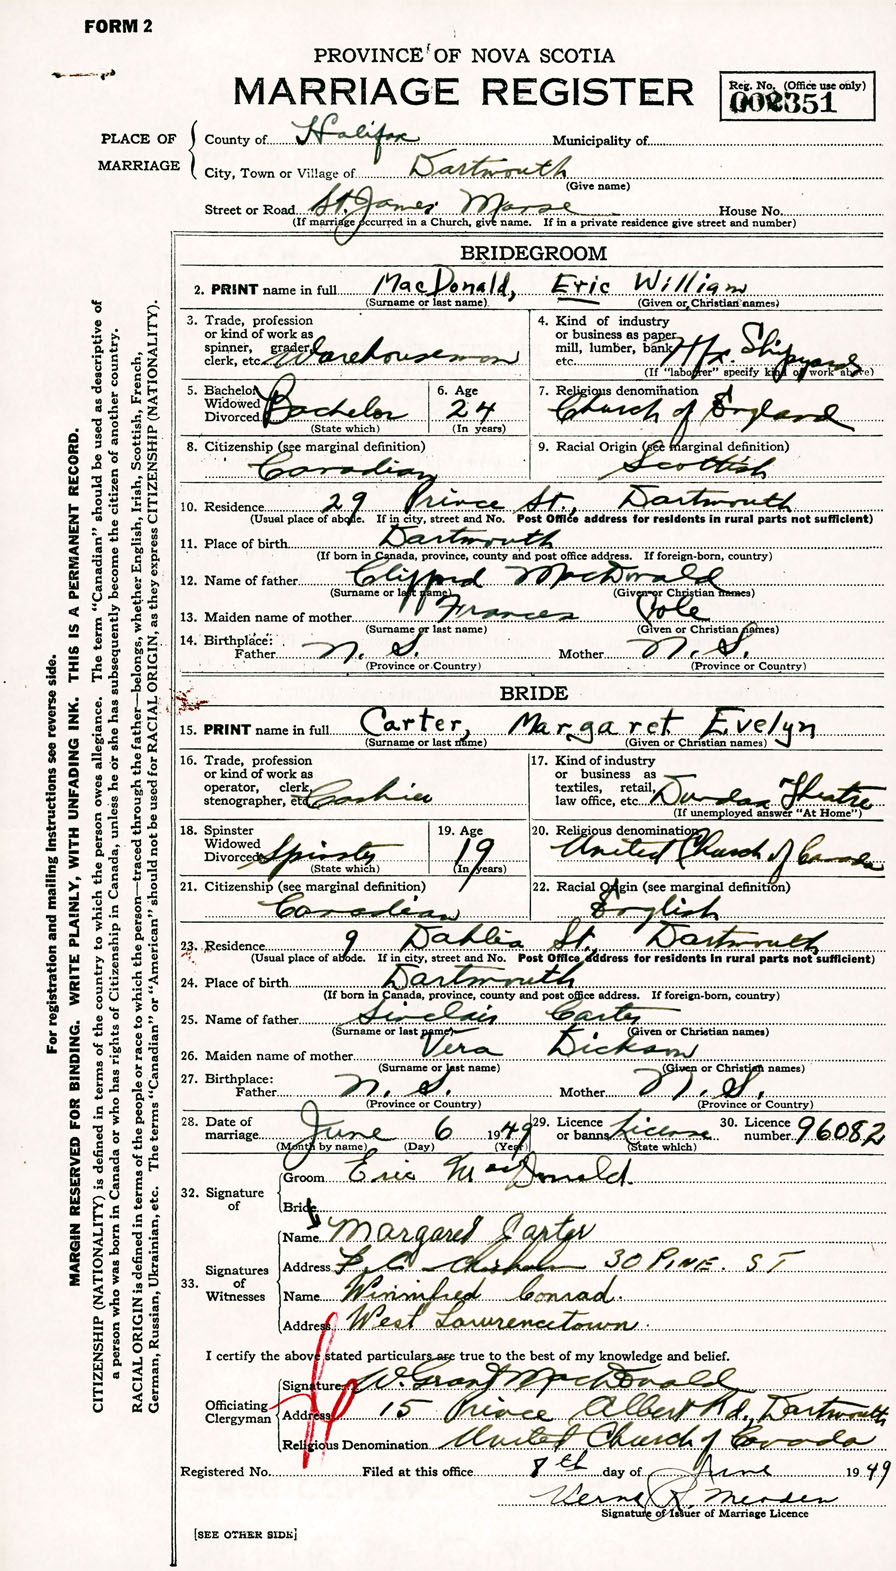 FORM 2
PROVINCE OF NOVA SCOTIA
MARRIAGE REGISTER
Reg. No. (Office use only)
002351
PLACE OF MARRIAGE
County of Halifax Municipality of
City, Town or Village of Dartmouth
(Give name)
Street or Road St. James Manse House No.
(If marriage occurred in a Church, give name. If in a private residence give street and number)
BRIDEGROOM
2. PRINT name in full MacDonald, Eric William
(Surname or last name) (Given or Christian names)
3. Trade, profession or kind of work as spinner, grader, clerk, etc. Warehouseman
4. Kind of industry or business as paper mill, lumber, bank etc. Hfx. Shipyard
(If "laborer" specify kind of work above)
5. Bachelor Widowed Divorced Bachelor
(State which)
6. Age 24
(In years)
7. Religious denomination Church of England
8. Citizenship (see marginal definition) Canadian
9. Racial Origin (see marginal definition) Scottish
10. Residence 29 Prince St., Dartmouth
(Usual place of abode. If in city, street and No. Post Office address for residents in rural parts not sufficient)
11. Place of birth Dartmouth
(If born in Canada, province, county and post office address. If foreign-born, country)
12. Name of father Clifford MacDonald
(Surname or last name) (Given or Christian names)
13. Maiden name of mother Frances Pole
(Surname or last name) (Given or Christian names)
14. Birthplace:
Father N. S. Mother N. S.
(Province or Country) (Province or Country)
BRIDE
15. PRINT name in full Carter, Margaret Evelyn
(Surname or last name) (Given or Christian names)
16. Trade, profession or kind of work as operator, clerk, stenographer, etc Cashier
17. Kind of industry or business as textiles, retail, law office, etc. Dundas Theatre
(If unemployed answer "At Home")
18. Spinster Widowed Divorced Spinster
(State which)
19. Age 19
(In years)
20. Religious denomination United Church of Canada
21. Citizenship (see marginal definition) Canadian
22. Racial Origin (see marginal definition) English
23. Residence 9 Dahlia St. Dartmouth
(Usual place of abode. If in city, street and No. Post Office address for residents in rural parts not sufficient)
24. Place of birth Dartmouth
(If born in Canada, province, county and post office address. If foreign-born, country)
25. Name of father Sinclair Carter
(Surname or last name) (Given or Christian names)
26. Maiden name of mother Vera Dickson
(Surname or last name) (Given or Christian names)
27. Birthplace:
Father N. S. Mother N. S.
(Province or Country) (Province or Country)
28. Date of marriage June 6 1949
(Month by name) (Day) (Year)
29. Licence or banns License
(State which)
30. Licence number 96082
32. Signature of
Groom Eric MacDonald
Bride
Name Margaret Carter
33. Signatures of Witnesses
Address F. C. Chisholm 30 PINE. ST
Name Winnifred Conrad.
Address West Lawrencetown.
I certify the above stated particulars are true to the best of my knowledge and belief.
Officiating Clergyman
Signature W. Grant MacDonald
Address 15 Prince Albert Rd., Dartmouth
Religious Denomination United Church of Canada
Registered No. Filed at this office 8th day of June 1949
Signature of Issuer of Marriage Licence
[SEE OTHER SIDE]
For registration and mailing instructions see reverse side.
MARGIN RESERVED FOR BINDING. WRITE PLAINLY, WITH UNFADING INK. THIS IS A PERMANENT RECORD.
CITIZENSHIP (NATIONALITY) is defined in terms of the country to which the person owes allegiance. The term "Canadian" should be used as descriptive of
a person who was born in Canada or who has rights of Citizenship in Canada, unless he or she has subsequently become the citizen of another country.
RACIAL ORIGIN is defined in terms of the people or race to which the person—traced through the father—belongs, whether English, Irish, Scottish, French,
German, Russian, Ukrainian, etc. The terms "Canadian" or "American" should not be used for RACIAL ORIGIN, as they express CITIZENSHIP (NATIONALITY).